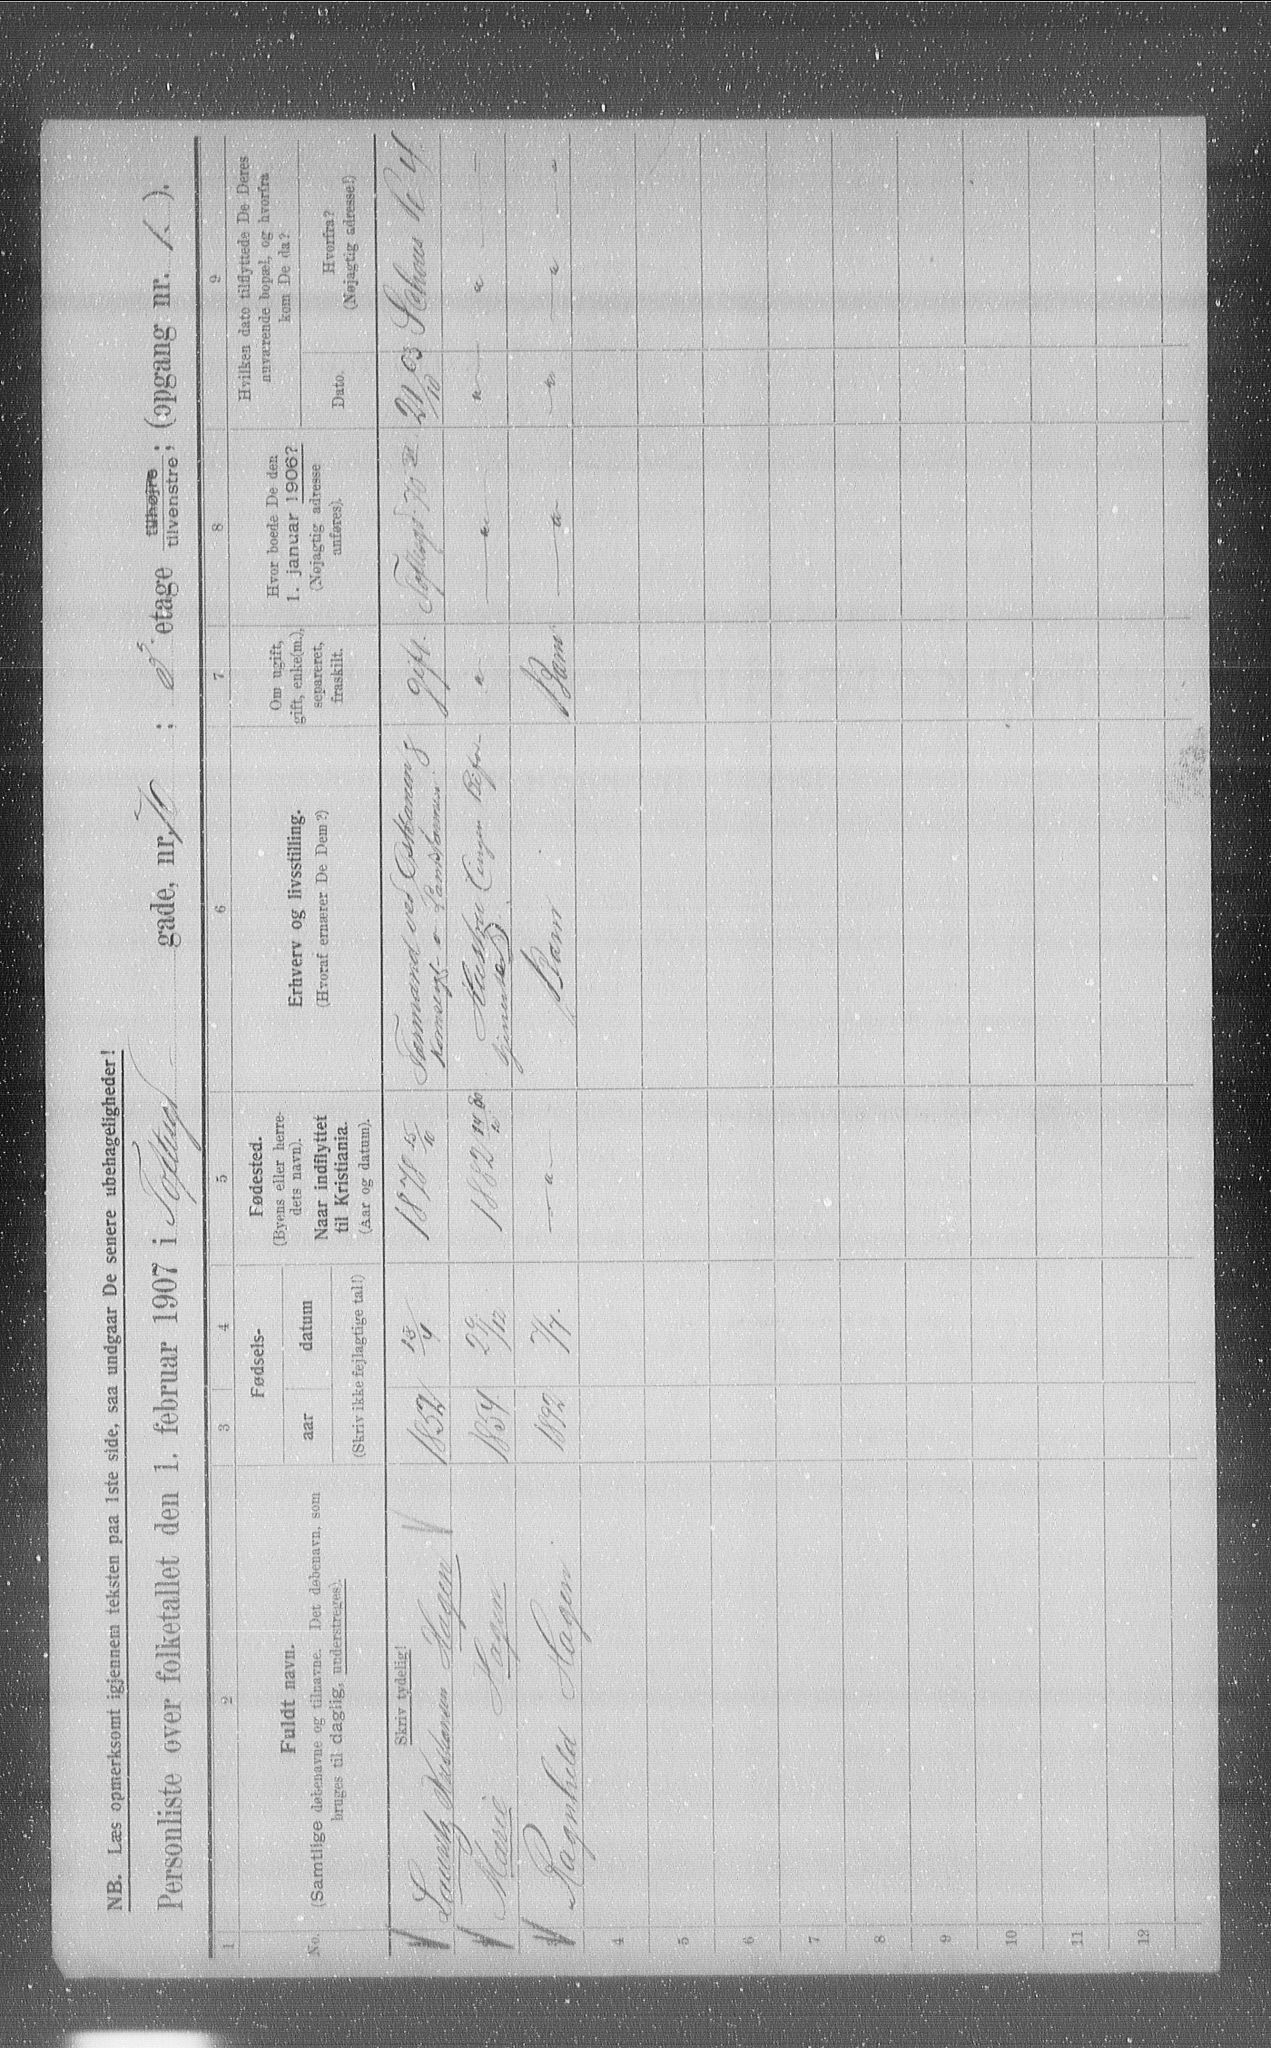 NB. Læs opmerksomt igjennem teksten paa 1ste side, saa undgaar De senere ubehageligheder!
Personliste over folketallet den 1. februar 1907 i Toftesgt gade, nr. 70 ; 2 etage tilhøjre tilvenstre; (opgang nr. 1. ).
1 2 3 4 5 6 7 8 9
No.
Fuldt navn.
(Samtlige døbenavne og tilnavne. Det døbenavn, som
bruges til daglig, understreges).
Fødsels-
aar datum
(Skriv ikke fejlagtige tal!)
Fødested.
(Byens eller herre-
dets navn).
Naar indflyttet
til Kristiania.
(Aar og datum).
Erhverv og livsstilling.
(Hvoraf ernærer De Dem?)
Om ugift,
gift, enke(m.),
separeret,
fraskilt.
Hvor boede De den
1. januar 1906?
(Nøjagtig adresse
anføres).
Hvilken dato tilflyttede De Deres
nuværende bopæl, og hvorfra
kom De da?
Dato.
Hvorfra?
(Nøjagtig adresse!)
Skriv tydelig!
Lauritz Kristiansen Hagen 1852 13/4 1878 15/10 Formand ved gift. 70 21/10 03
Marie Hagen 1854 29/12 1882 Hustru Ingen " " " "
Ragnhild Hagen 1892 7/7. " Barn Barn " " "
4
5
6
7
8
9
10
11
12